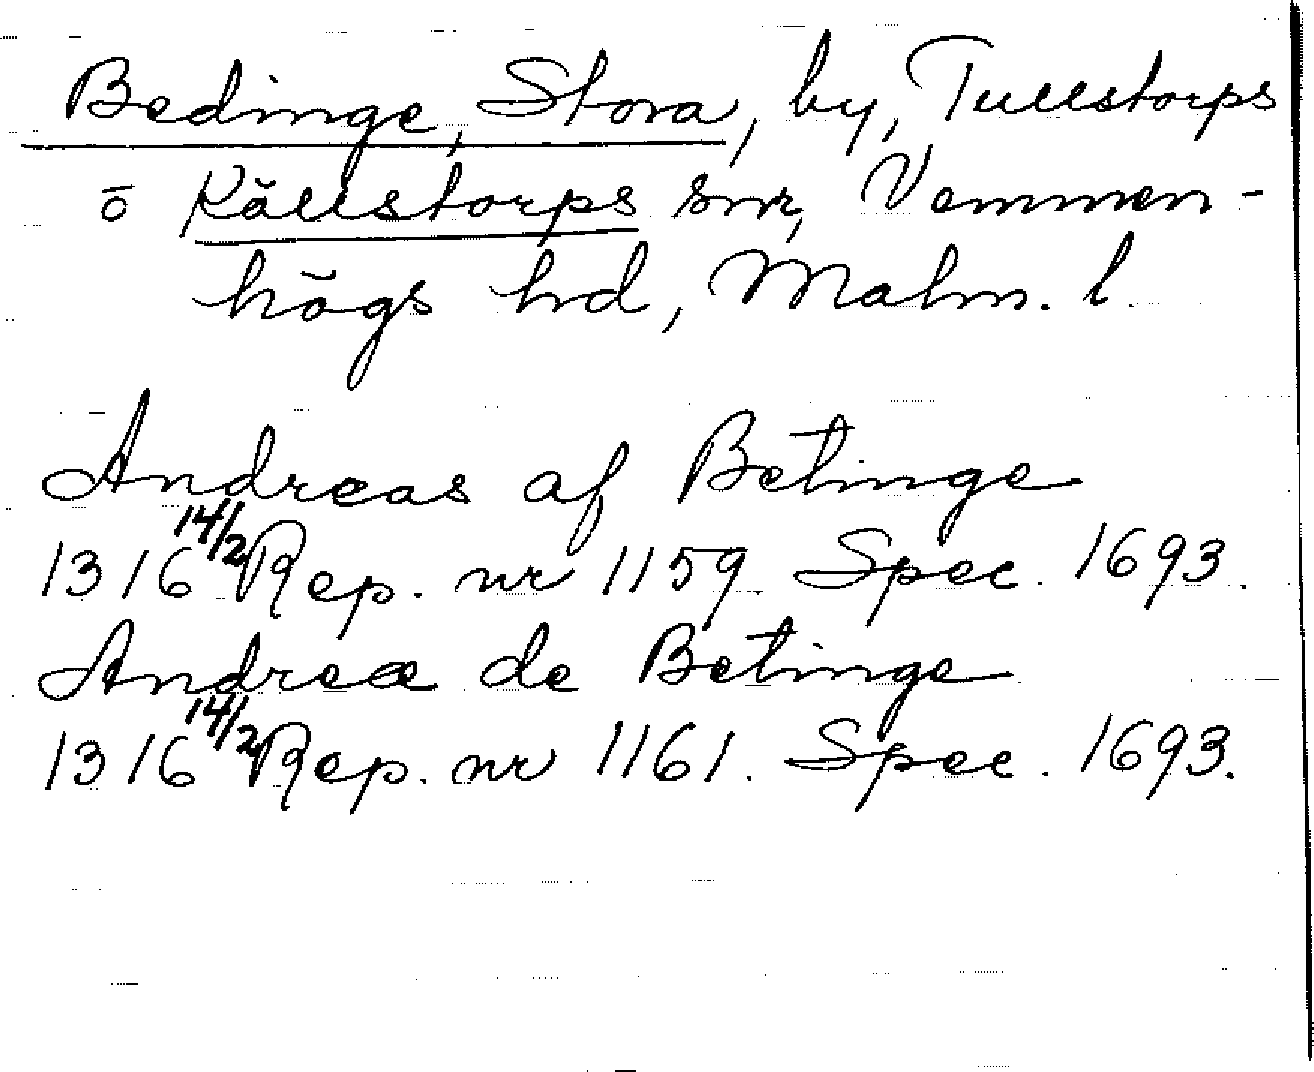 Bedinge, Stora, by, Tullstorps
o Källstorps snr, Vemmen-
högs hd, Malm. l.
Andreas af Betinge
1316 14/2 Rep. nr 1159 Spec. 1693.
Andreæ de Betinge
1316 14/2 Rep. nr 1161. Spec. 1693.